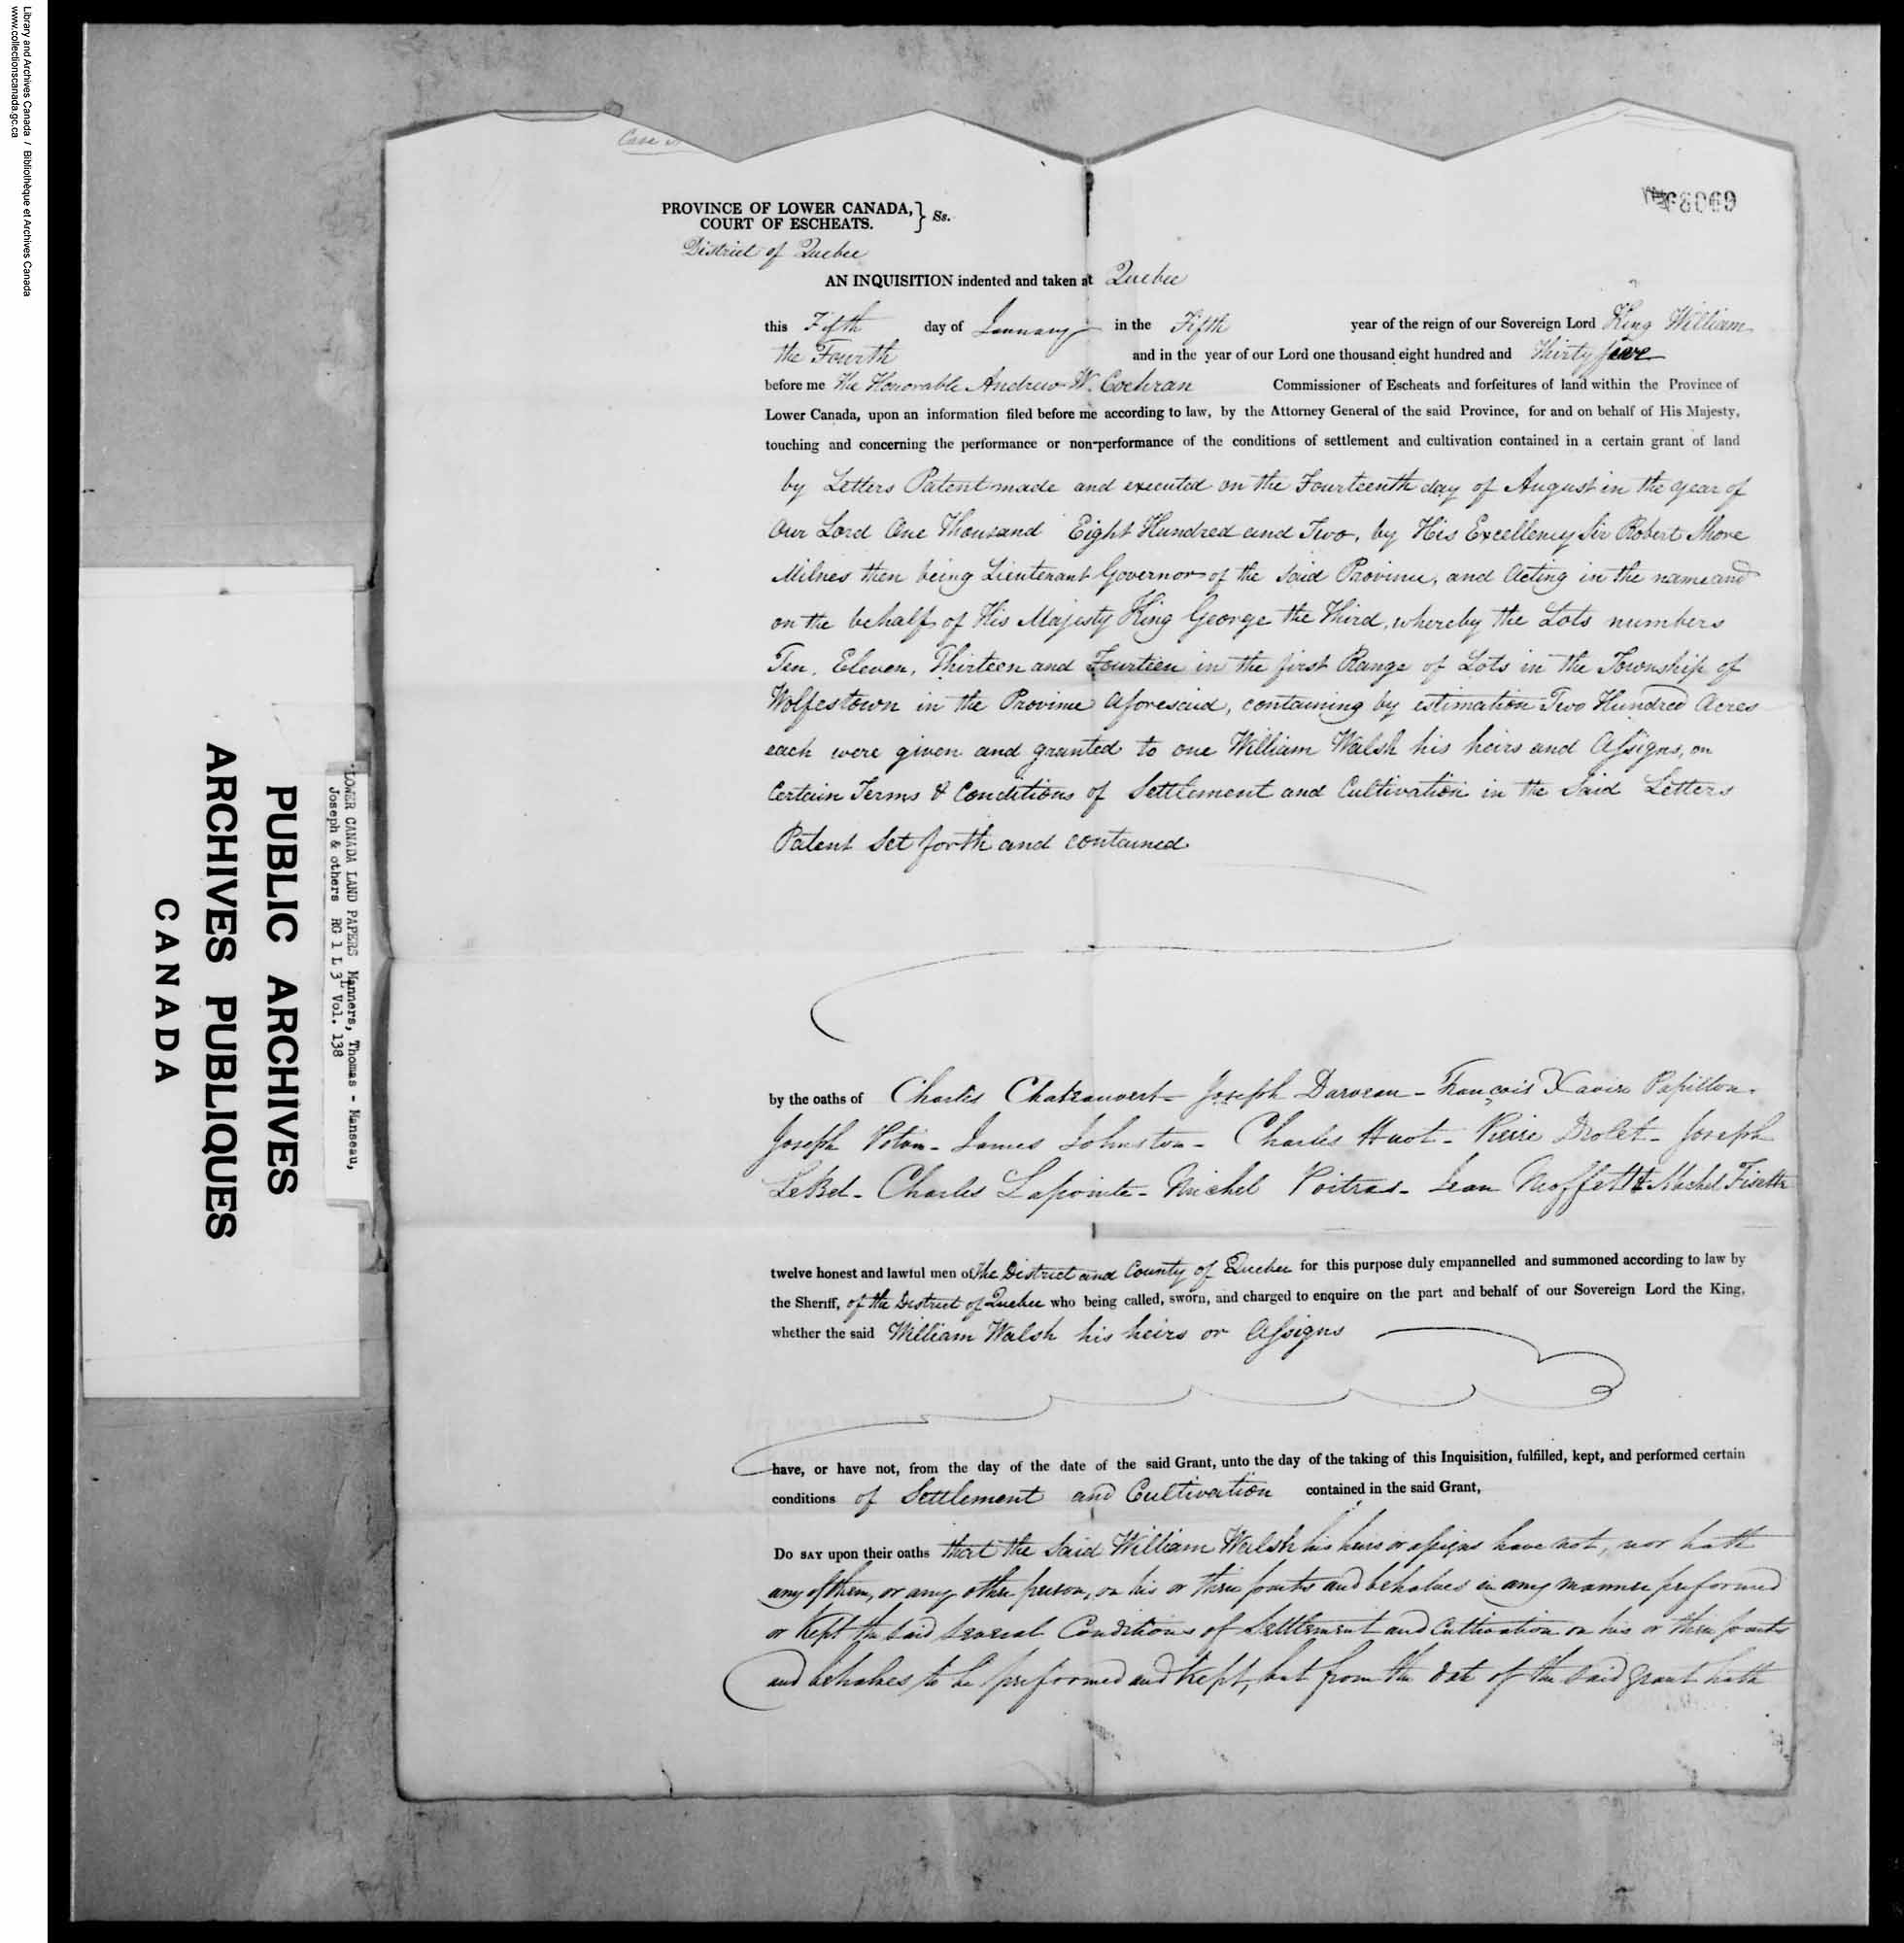 Library and Archives Canada / Bibliothèque et Archives Canada
www.collectionscanada.gc.ca
PUBLIC ARCHIVES
ARCHIVES PUBLIQUES
CANADA
LOWER CANADA LAND PAPERS Manners, Thomas - Manseau,
Joseph & others RG 1 L 3L Vol. 138
Case
68069
PROVINCE OF LOWER CANADA, } Ss.
COURT OF ESCHEATS.
District of Quebec
AN INQUISITION indented and taken at Quebec
this Fifth day of January in the Fifth year of the reign of our Sovereign Lord King William
the Fourth and in the year of our Lord one thousand eight hundred and Thirty five
before me The Honorable Andrew W. Cochran Commissioner of Escheats and forfeitures of land within the Province of
Lower Canada, upon an information filed before me according to law, by the Attorney General of the said Province, for and on behalf of His Majesty,
touching and concerning the performance or non-performance of the conditions of settlement and cultivation contained in a certain grant of land
by Letters Patent made and executed on the Fourteenth day of August in the year of
Our Lord One Thousand Eight Hundred and Two, by His Excellency Sir Robert Shore
Milnes then being Lieutenant Governor of the said Province, and Acting in the name and
on the behalf of His Majesty King George the Third, whereby the Lots numbers
Ten, Eleven, Thirteen and Fourteen in the first Range of Lots in the Township of
Wolfestown in the Province Aforesaid, containing by estimation Two Hundred Acres
each were given and granted to one William Walsh his heirs and Assigns, on
Certain Terms & Conditions of Settlement and Cultivation in the Said Letters
Patent Set forth and contained
by the oaths of Charles Chateauvert - Joseph Darveau - François Xavier Papillon -
Joseph Potvin - James Johnston - Charles Huot - Pierre Drolet - Joseph
LeBel - Charles Lapointe - Michel Poitras - Jean Moffett & Michel Fisette
twelve honest and lawful men of the District and County of Quebec for this purpose duly empannelled and summoned according to law by
the Sheriff, of the District of Quebec who being called, sworn, and charged to enquire on the part and behalf of our Sovereign Lord the King,
whether the said William Walsh his heirs or Assigns
have, or have not, from the day of the date of the said Grant, unto the day of the taking of this Inquisition, fulfilled, kept, and performed certain
conditions of Settlement and Cultivation contained in the said Grant,
Do SAY upon their oaths that the said William Walsh his heirs or assigns have not, nor hath
any of them, or any other person, on his or their parts and behalves in any manner performed
or kept the said several Conditions of Settlement and Cultivation on his or their parts
and behalves to be performed and kept, but from the date of the said grant hath